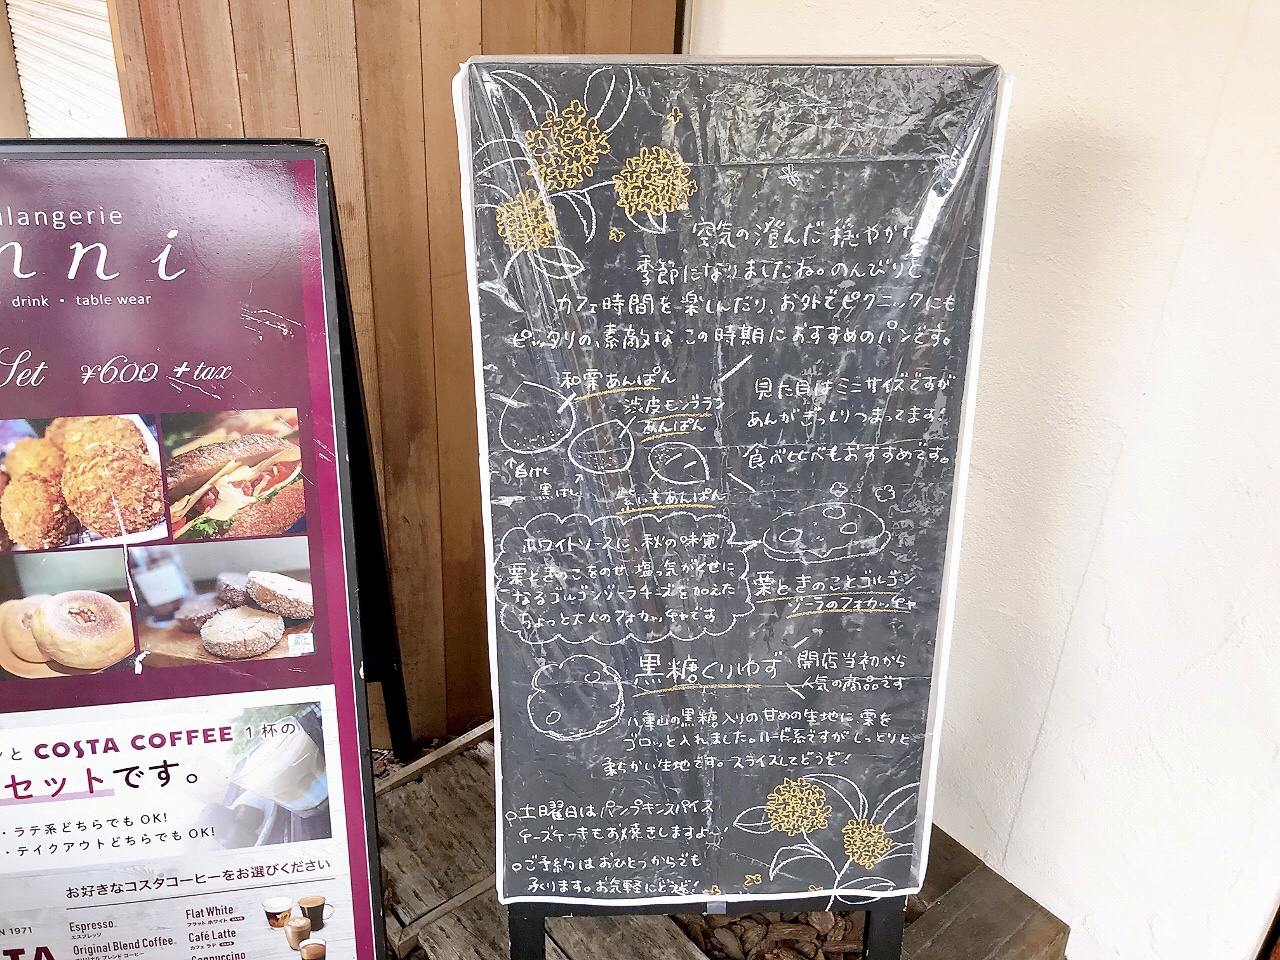 langerie
nni
drink • table wear
Set ¥600 +tax
と COSTA COFFEE 1杯の
セットです。
・ラテ系どちらでもOK!
・テイクアウトどちらでもOK!
お好きなコスタコーヒーをお選びください
N 1971
TA
Espresso
エスプレッソ
Original Blend Coffee
オリジナル ブレンド コーヒー
Flat White
フラット ホワイト
Café Latte
カフェ ラテ
Cappuccino
空気の澄んだ穏やかな
季節になりましたね。のんびりと
カフェ時間を楽しんだり、お外でピクニックにも
ピッタリの、素敵なこの時期におすすめのパンです。
和栗あんぱん
渋皮モンブラン
あんぱん
紫いもあんぱん
↑白けし
黒けし↑
見た目はミニサイズですが
あんがぎっしりつまってます!
食べ比べもおすすめです。
ホワイトソースに、秋の味覚
栗ときのこをのせ、塩っ気がくせに
なるゴルゴンゾーラチーズを加えた
ちょっと大人のフォカッチャです
栗ときのことゴルゴン
ゾーラのフォカッチャ
黒糖くりゆず
開店当初から
人気の商品です
八重山の黒糖入りの甘めの生地に、栗を
ゴロッと入れました。ハード系ですがしっとりと
柔らかい生地です。スライスしてどうぞ!
○土曜日はパンプキンスパイス
チーズケーキもお焼きしますよ〜!
○ご予約はおひとつからでも
承ります。お気軽にどうぞ!